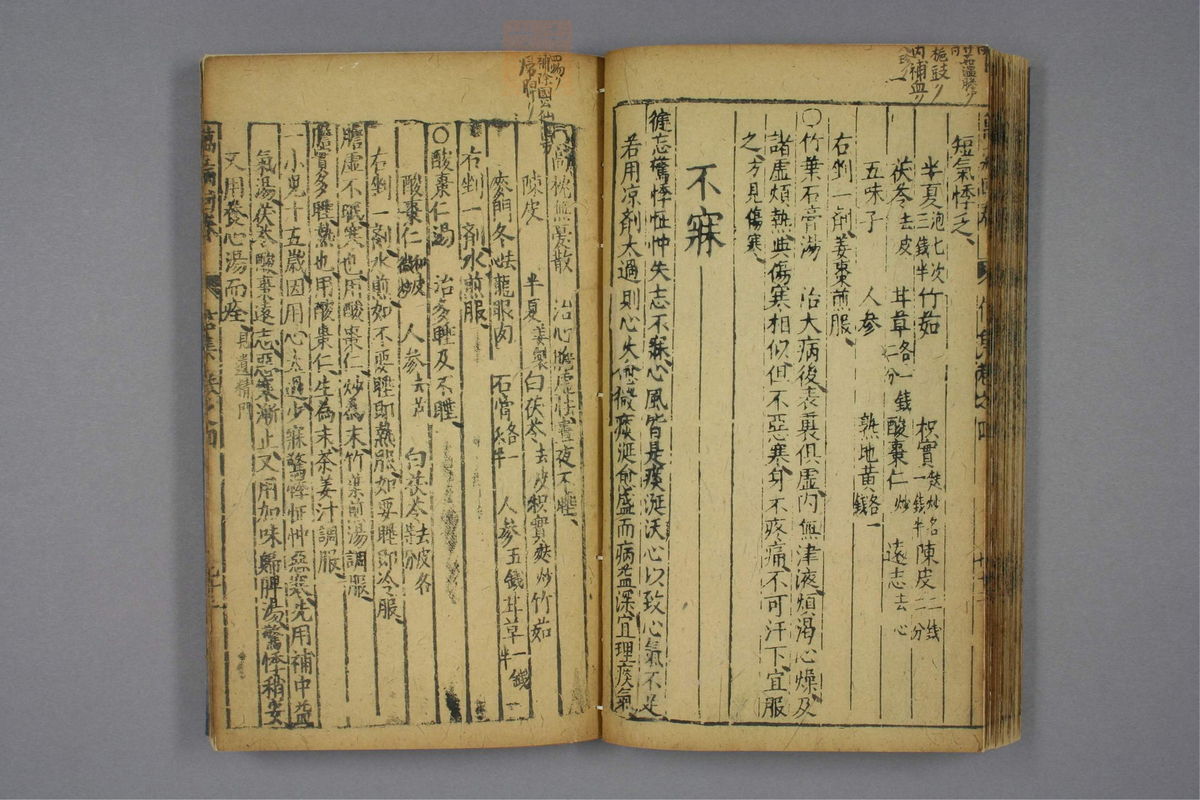 短氣悸乏、
半夏泡七次三錢半 竹茹 枳實麩炒各一錢半 陳皮二錢二分
茯苓去皮 甘草各一錢二分 酸棗仁炒 遠志去心
五味子 人參 熟地黃各一錢
右剉一劑、姜棗煎服、
○竹葉石膏湯 治大病後表裏俱虛、內無津液、煩渴心燥、及
諸虛煩熱、與傷寒相似、但不惡寒、身不疼痛、不可汗下、宜服
之、方見傷寒、
不寐
健忘驚悸怔忡失志不寐、心風皆是痰涎沃心、以致心氣不足
若用凉劑太過、則心火愈微、痰涎愈盛、而病益深、宜理痰氣
高枕無憂散 治心膽虛怯、晝夜不睡、
陳皮 半夏姜製 白茯苓去皮 枳實麩炒 竹茹
麥門冬去心 龍眼肉 石膏各一錢半 人參五錢 甘草一錢半
右剉一劑、水煎服、
○酸棗仁湯 治多睡及不睡、
酸棗仁和皮微炒 人參去芦 白茯苓去皮各等分
右剉一劑、水煎、如不要睡、即熱服、如要睡、即冷服、
膽虛不眠、寒也、用酸棗仁炒為末、竹葉煎湯調服、
膽實多睡、熱也、用酸棗仁生為末、茶姜汁調服、
一小兒十五歲、因用心太過、少寐、驚悸怔忡惡寒、先用補中益
氣湯、茯苓酸棗遠志、惡寒漸止、又用加味歸脾湯、驚悸稍安
又用養心湯而痊、見遺精門